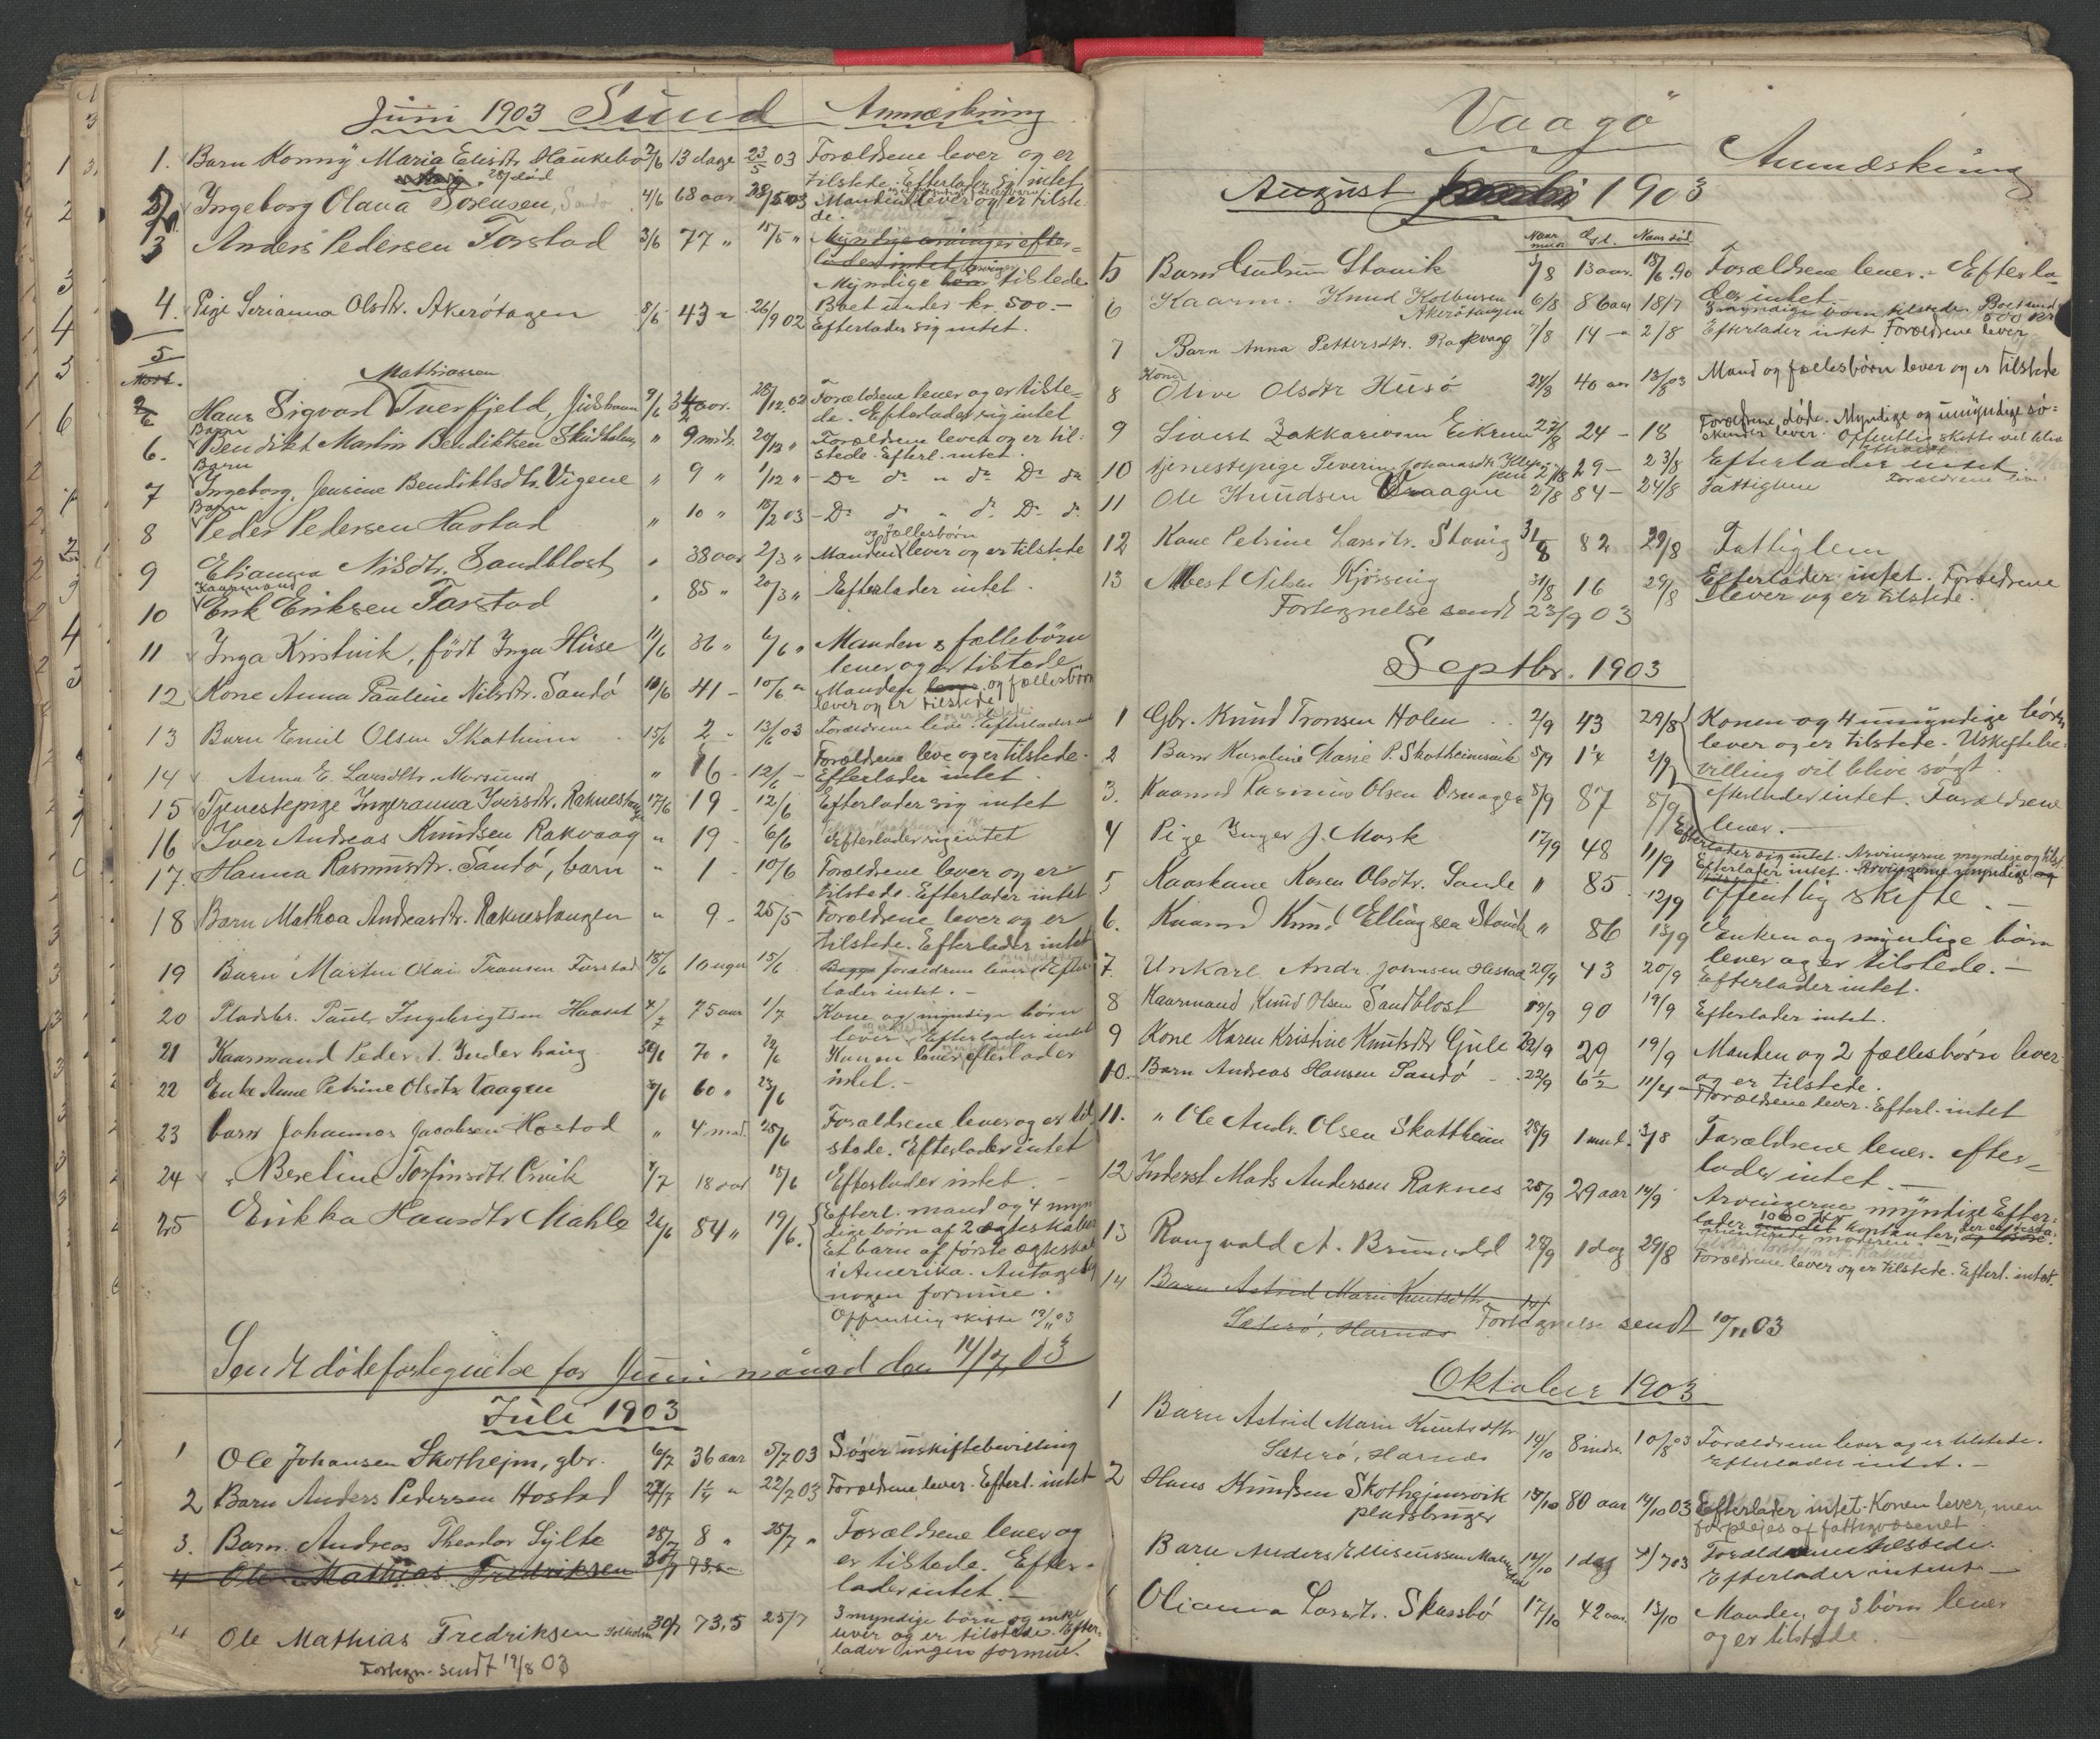 Juni 1903 Sund Anmærkning
1. Barn Konny Maria Elisdtr. Haukebø 2/6 13 dage 23/5 03 Forældrene lever og er
tilstede. Efterlader sig intet
Ingeborg Olava Sørensen, Sandø 4/6 68 aar 28/5 03 Manden lever og er tilste-
de.
3 Anders Pedersen Farstad 3/6 77 " 15/5 " Myndige arvinger efter=
lader intet
Myndige tilstede
4. Pige Serianna Olsdtr. Akerøtagen 8/6 43 " 26/9 02 Boet under kr. 500.-
Efterlader sig intet.
5
Mathiassen
Hans Sigvart Tverfjeld, 9/6 28/12 02 Forældrene lever og er tilste=
de. Efterlader sig intet
Barn
6. Bendikt Martin Bendiktsen " 9 mdr. 20/12 " Forældrene lever og er til-
stede. Efterl. intet.
Barn
7 Ingeborg Jensine Bendiktsdtr. Vigene " 9 " 1/12 " - Do do " do Do do
Barn
8 Peder Pedersen Hastad " 10 " 18/2 03 - Do do " do Do do
og fællesbørn
9 Elianna Nilsdtr. Sandblost " 38 aar 2/3 " Manden lever og er tilstede
Kaarmand
10 Erik Eriksen Farstad " 85 " 20/3 " Efterlader intet.
11 Inga Kristvik, født Inga Huse 11/6 36 " 6/6 " Manden & fællebørn
lever og er tilstede
12 Kone Anna Pauline Nilsdtr. Sandø 10/6 41 - 10/6 " Manden og fællesbørn
lever og er tilstede
13 Barn Emil Olsen Skotheim 15/6 2 - 13/6 03 Forældrene leve. Efterlader
14 Anna E. Larsdtr. Morsund " 16 - 12/6 - Forældrene leve og er tilstede.
Efterlader intet.
15 Tjenestepige Ingeranna Iversdtr. Raknes 17/6 19 - 12/6 Efterlader sig intet
16 Iver Andreas Knudsen Rakvaag " 19 - 6/6 Efterlader sig intet
17. Hanna Rasmusdtr. Sandø, barn " 1 - 10/6 Forældrene lever og er
tilstede. Efterlader intet
18 Barn Mathea Andreasdtr. Rakneshaugen " 9 - 25/5 Forældrene lever og er
tilstede. Efterlader intet
19 Barn Martin Olai Transen Farstad 18/6 10 uger 15/6 forældrene lever. Efter-
lader intet. -
20 Pladsbr. Paul Ingebrigtsen Haaset 4/7 75 aar 1/7 Kone og myndige børn
lever. Efterlader intet
21 Kaarmand Peder A. Inderhaug 30/6 70 " Konen lever, efterlader
intet. -
22 Enke Anne Petrine Olsdtr. Vaagen 60 " 23/6
23 barn Johannes Jacobsen Hostad " 4 md. 25/6 Forældrene lever og er til
stede. Efterlader intet
24 " Beretine Torfinsdtr. 4/7 18 aar 18/6 Efterlader intet. -
25 Erikka Hansdtr. Mahle 26/6 84 " 19/6. Efterl. mand og 4 myn
dige børn af 2 ægteskaber
Et barn af første ægteskab
i Amerika. Antagelig
nogen formue.
Offentlig skifte 19/11 03
Sendt dødefortegnelse for Juni måned den 14/7 03
Juli 1903
1 Ole Johansen Skothejm, gbr. 6/7 36 aar 5/7 03 Søger uskiftebevilling
2 Barn Anders Pedersen Hostad 27/7 1¼ " 22/7 03 Forældrene lever. Efterl. intet
3. Barn Andreas Theodor Sylte 28/7 8 " 25/7 " Forældrene lever og
er tilstede. Efter-
lader intet. -
4 Ole Mathias Fredriksen 30/7 73.5 -
4 Ole Mathias Fredriksen Solholm 30/7 73,5 25/7 3 myndige børn og enke
lever og er tilstede. Efter-
lader ingen formue.
Fortegn. sendt 19/8 03
Vaagø
Anmærkning
August 1903
Naar død
5 Barn Gudrun Stavik 3/8 13 aar Forældrene lever. - Efterla-
der intet.
6 Kaarm. Knud Kolbensen 6/8 86 aar 18/7 myndige børn tilstede. Boet under
Akerøhaugen 500 kr
7 Barn Anna Pettersdtr. Rakvaag 7/8 14 - 2/8 Efterlader intet Forældrene lever
Kone
8 Olive Olsdtr Husø 24/8 40 aar 13/8 03 Mand og fællesbørn lever og er tilstede
9 Sivert Zakkariassen Eikrem 27/8 24 - 18 Forældrene døde. Myndige og umyndige sø=
skende lever. Offentlig skifte vil blive
10 tjenestepige Severine Johansdtr. 27/8 29 - 23/8 Efterlader intet.
Forældrene lever
11 Ole Knudsen Vaagen 27/8 84 - 24/8 Fattiglem
12 Kone Petrine Larsdtr. Stavig 31/8 82 29/8 Fattiglem
13 Albert Nilsen Kjørsving 31/8 16 29/8 Efterlader intet. Forældrene
lever og er tilstede.
Fortegnelse sendt 23/9 03
Septbr. 1903
1 Gbr. Knud Tronsen Holen 2/9 43 29/8 Konen og 4 umyndige børn
lever og er tilstede. Uskiftebe-
villing vil blive søgt.
2 Barn Karoline Marie P. Skotheimsvik 5/9 1¼ 2/9 efterlader intet. Forældrene
lever. -
3. Kaarmd Rasmus Olsen 5/9 87 5/9 Efterlader sig intet. Arvingerne myndige og tilst.
4 Pige Inger J. Mork 17/9 48 11/9 Efterlader intet. Arvingerne myndige og
5 Kaarkone Karen Olsdtr. Sande " 85 12/9 Offentlig skifte. -
6. Kaarmd Knud Ellingsen Stavik " 86 13/9 Enken og myndige børn
lever og er tilstede. -
7. Unkarl Andr. Johnsen Hestad 20/9 43 20/9 Efterlader intet.
8 Kaarmand Knud Olsen Sandblost 90 19/9 Efterlader intet.
9 Kone Karen Kristine Knutsdtr Gule 22/9 29 19/9 Manden og 2 fællesbørn lever
og er tilstede.
10. Barn Andreas Hansen Sandø 22/9 6½ 11/4 - Forældrene lever. Efterl. intet
11. " Ole Andr. Olsen Skottheim 28/9 1 mnd. 3/8 Forældrene lever. efter=
lader intet. -
12 Inderst Mads Andersen Raknes 28/9 29 aar 14/9 Arvingerne myndige Efter-
lader 1000 kr kontanter,
13 Rangvald A. Brunvold 28/9 1 dag 29/8 Forældrene lever og er tilstede. Efterl. intet.
14 Barn Astrid Marie Knutsdtr
Sæterø, Harnes Fortegnelse sendt 10/11 03
Oktober 1903
1 Barn Astrid Marie Knutsdtr
Sæterø, Harnes 14/10 8 mdr. 10/8 03 Forældrene lever og er tilstede.
Efterlader intet. -
2 Hans Knudsen Skothejmsvik 15/10 80 aar 14/10 03 Efterlader intet. Konen lever, men
pladsbruger forplejes af fattigvæsenet
Barn Anders Elliseussen 14/10 1 dag Forældrene tilstede.
Efterlader intet -
Olianna Larsdtr. Skarsbø 17/10 42 aar 13/10 Manden og 3 børn lever
og er tilstede